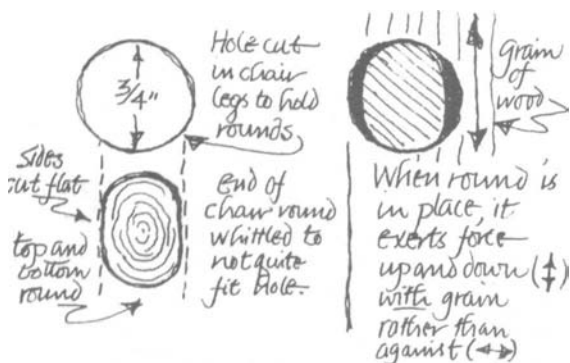 Hole cut
in chair
legs to hold
rounds
3/4"
sides
cut flat
top and
bottom
round
end of
chair round
whittled to
not quite
fit hole.
grain
of
wood
When round is
in place, it
exerts force
up and down (↕)
with grain
rather than
against (↔)